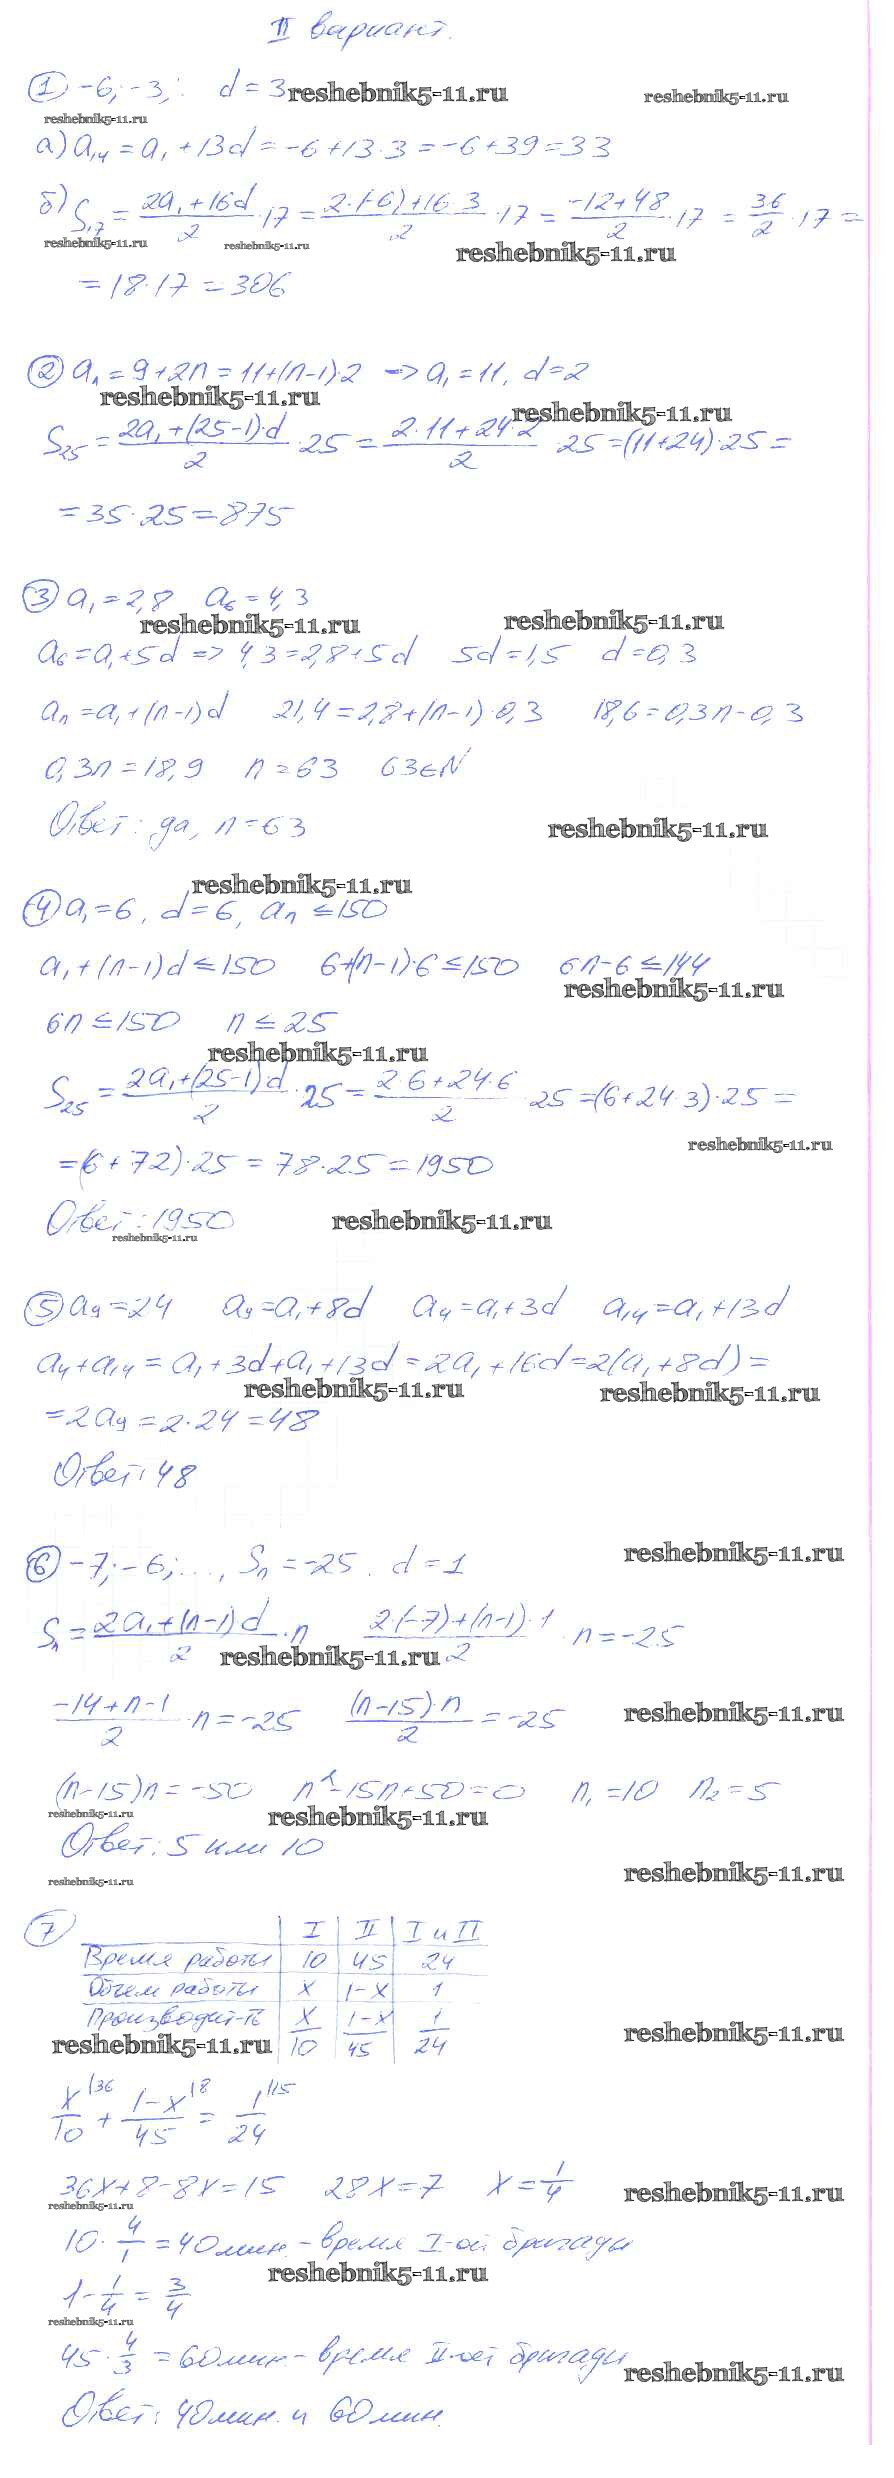 II вариант.
① -6; -3; : d = 3
reshebnik5-11.ru
reshebnik5-11.ru
reshebnik5-11.ru
а) a₁₄ = a₁ + 13d = -6 + 13·3 = -6 + 39 = 33
б) S₁₇ = (2a₁ + 16d)/2 · 17 = (2·(-6) + 16·3)/2 · 17 = (-12 + 48)/2 · 17 = 36/2 · 17 =
reshebnik5-11.ru
reshebnik5-11.ru
reshebnik5-11.ru
= 18·17 = 306
② aₙ = 9 + 2n = 11 + (n-1)·2 => a₁ = 11, d = 2
reshebnik5-11.ru
reshebnik5-11.ru
S₂₅ = (2a₁ + (25-1)·d)/2 · 25 = (2·11 + 24·2)/2 · 25 = (11 + 24)·25 =
= 35·25 = 875
③ a₁ = 2,8 a₆ = 4,3
reshebnik5-11.ru
reshebnik5-11.ru
a₆ = a₁ + 5d => 4,3 = 2,8 + 5d 5d = 1,5 d = 0,3
aₙ = a₁ + (n-1)d 21,4 = 2,8 + (n-1)·0,3 18,6 = 0,3n - 0,3
0,3n = 18,9 n = 63 63 ∈ N
Ответ: да, n = 63
reshebnik5-11.ru
reshebnik5-11.ru
④ a₁ = 6, d = 6, aₙ ≤ 150
a₁ + (n-1)d ≤ 150 6 + (n-1)·6 ≤ 150 6n - 6 ≤ 144
reshebnik5-11.ru
6n ≤ 150 n ≤ 25
reshebnik5-11.ru
S₂₅ = (2a₁ + (25-1)d)/2 · 25 = (2·6 + 24·6)/2 · 25 = (6 + 24·3)·25 =
reshebnik5-11.ru
= (6 + 72)·25 = 78·25 = 1950
Ответ: 1950
reshebnik5-11.ru
reshebnik5-11.ru
⑤ a₉ = 24 a₉ = a₁ + 8d a₄ = a₁ + 3d a₁₄ = a₁ + 13d
a₄ + a₁₄ = a₁ + 3d + a₁ + 13d = 2a₁ + 16d = 2(a₁ + 8d) =
reshebnik5-11.ru
reshebnik5-11.ru
= 2a₉ = 2·24 = 48
Ответ: 48
⑥ -7; -6; ..., Sₙ = -25. d = 1
reshebnik5-11.ru
Sₙ = (2a₁ + (n-1)d)/2 · n (2·(-7) + (n-1)·1)/2 · n = -25
reshebnik5-11.ru
(-14 + n - 1)/2 · n = -25 ((n-15)·n)/2 = -25
reshebnik5-11.ru
(n-15)n = -50 n² - 15n + 50 = 0 n₁ = 10 n₂ = 5
reshebnik5-11.ru
reshebnik5-11.ru
Ответ: 5 или 10
reshebnik5-11.ru
reshebnik5-11.ru
⑦ I II I и II
Время работы 10 45 24
Объем работы x 1-x 1
Производит-ть x/10 (1-x)/45 1/24
reshebnik5-11.ru
reshebnik5-11.ru
x/10 |36 + (1-x)/45 |8 = 1/24 |15
36x + 8 - 8x = 15 28x = 7 x = 1/4
reshebnik5-11.ru
reshebnik5-11.ru
10 · 4/1 = 40 мин. - время I-ой бригады
reshebnik5-11.ru
1 - 1/4 = 3/4
reshebnik5-11.ru
45 · 4/3 = 60 мин. - время II-ой бригады
reshebnik5-11.ru
Ответ: 40 мин. и 60 мин.